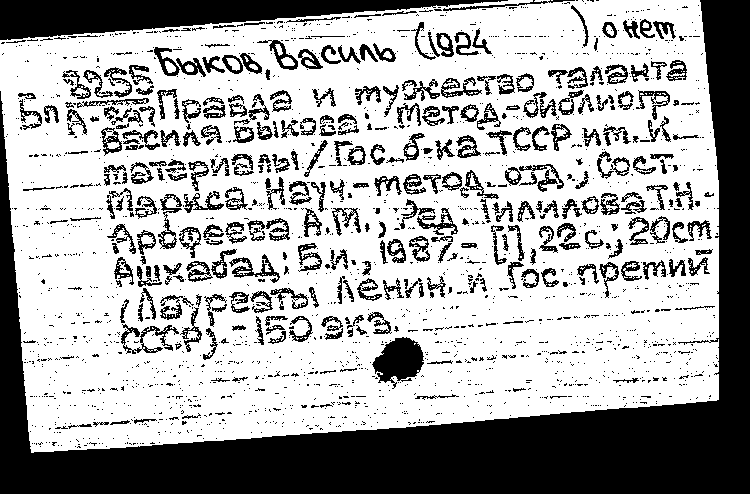 Быков, Василь (1924 ), о нем.
Бп 8255 Правда и мужество таланта
Василя Быкова: Метод.-библиогр.
материалы / Гос. б-ка ТССР им. К.
Маркса. Науч.-метод. отд.; Сост.
Арофеева А.М.; Ред. Гилилова Т.Н.-
Ашхабад: Б.и., 1987.- [1], 22 с.; 20 см
(Лауреаты Ленин. и Гос. премий
СССР).- 150 экз.